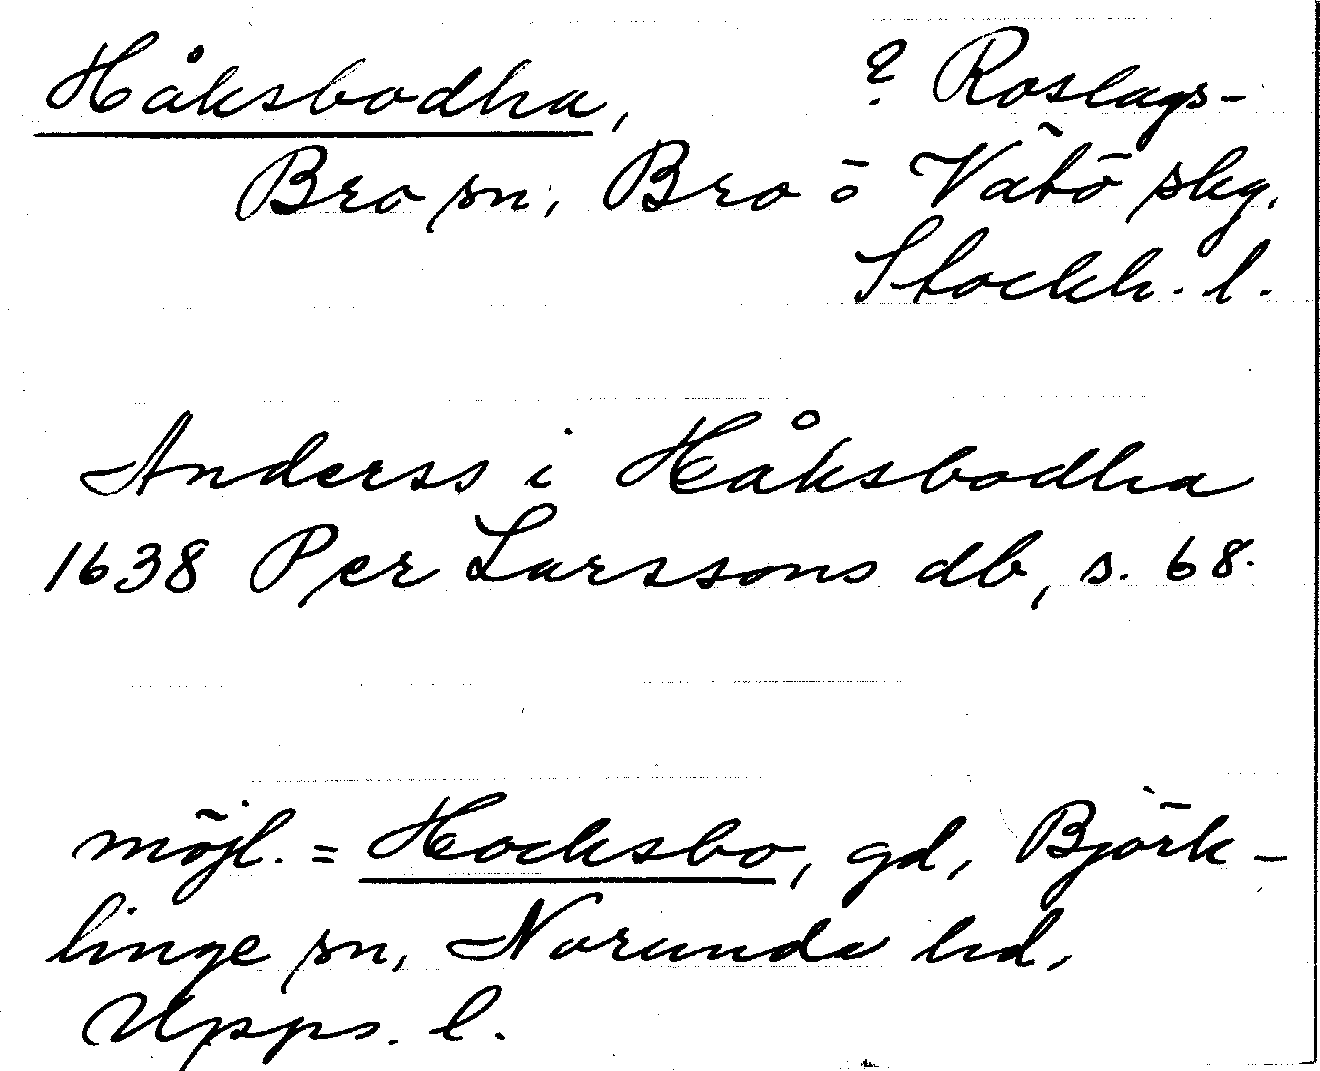 Håksbodha, ? Roslags-
Bro sn, Bro o Vätö skg.
Stockh. l.
Anderss i Håksbodha
1638 Per Larssons db, s. 68.
möjl. = Hocksbo, gd, Björk-
linge sn, Norunda hd,
Upps. l.